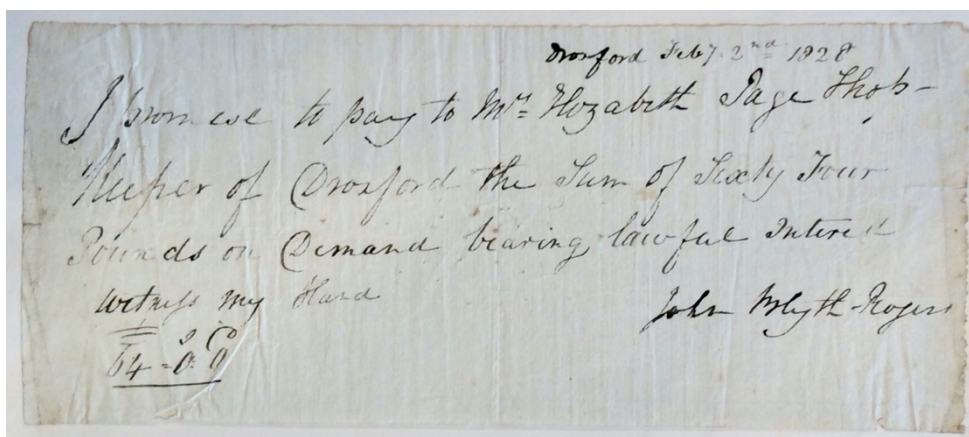 Droxford Feby 2nd 1828
I promise to pay to Mrs Elizabeth Page Shop-
Keeper of Droxford the Sum of Sixty Four
Pounds on Demand bearing lawful Interest
Witness my Hand
John Blyth Rogers
64=0.0